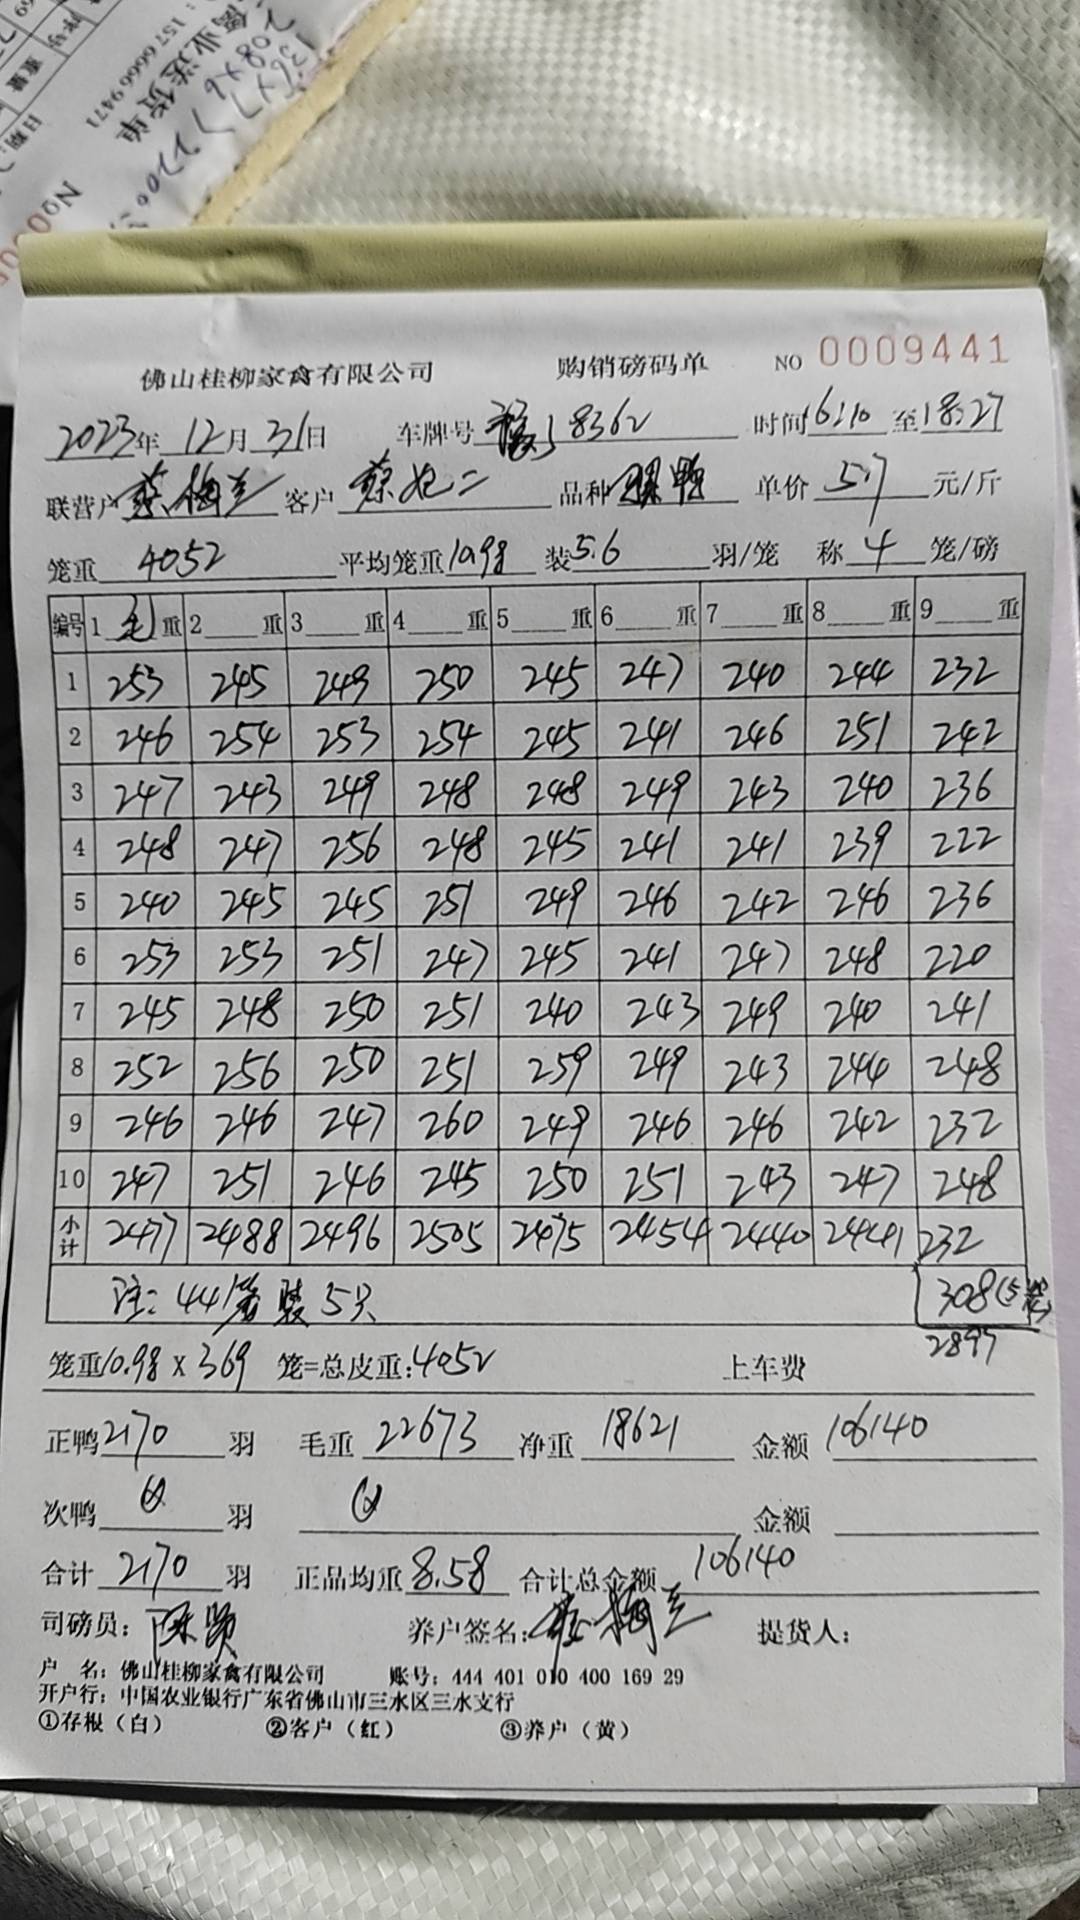 157 6666 9471
禽业送货单
佛山桂柳家禽有限公司 购销磅码单 NO 0009441
2023年 12月 31日 车牌号 8362 时间 16:10 至 18:27
联营户 蔡梅兰 客户 品种 单价 5.7 元/斤
笼重 4052 平均笼重 10.98 装 5.6 羽/笼 称 4 笼/磅
编号 1 毛 重 2 重 3 重 4 重 5 重 6 重 7 重 8 重 9 重
1 253 245 249 250 245 247 240 244 232
2 246 254 253 254 245 241 246 251 242
3 247 243 249 248 248 249 243 240 236
4 248 247 256 248 245 241 241 239 222
5 240 245 245 251 249 246 242 246 236
6 253 253 251 247 245 241 247 248 220
7 245 248 250 251 240 243 249 240 241
8 252 256 250 251 259 249 243 244 248
9 246 246 247 260 249 246 246 242 232
10 247 251 246 245 250 251 243 247 248
小计 2477 2488 2496 2505 2475 2454 2440 2441 232
注: 装5只 308
2897
笼重 10.98 x 369 笼=总皮重: 4052 上车费
正鸭 2170 羽 毛重 22673 净重 18621 金额 106140
次鸭 0 羽 0 金额
合计 2170 羽 正品均重 8.58 合计总金额 106140
司磅员: 养户签名: 蔡梅兰 提货人:
户 名: 佛山桂柳家禽有限公司 账号: 444 401 010 400 169 29
开户行: 中国农业银行广东省佛山市三水区三水支行
①存根（白） ②客户（红） ③养户（黄）